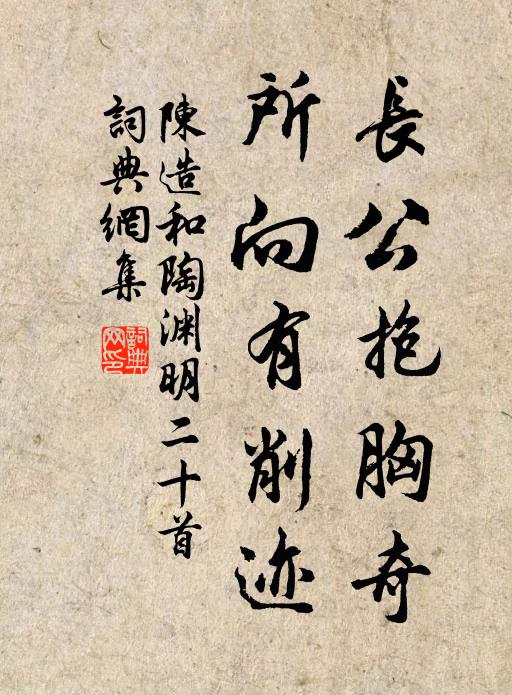 長公抱胸奇
所向有削迹
陳造和陶淵明二十首
詞典網集
詞典網印